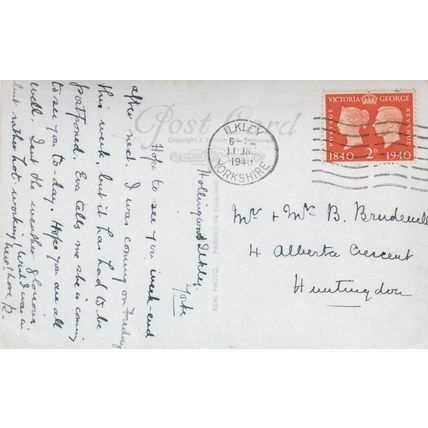 Post Card
Hollingwood Ilkley.
Yorks
Hope to see you week-end
after next. I was coming on Friday
this week, but it has had to be
postponed. Eva tells me she is coming
to see you to-day. Hope you are all
well. Isn't the weather glorious
but rather hot working! Wish I was in
Love, R.
ILKLEY
11 JU
1940
YORKSHIRE
VICTORIA GEORGE
POSTAGE
REVENUE
1840 2D 1940
Mr & Mrs B. Brudenell
4 Alberta Crescent
Huntingdon